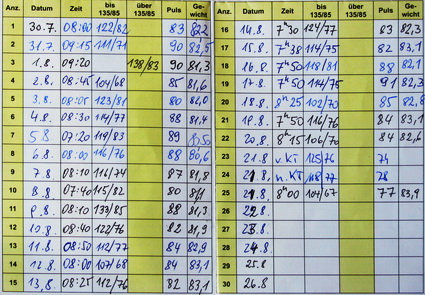 Anz. Datum Zeit bis 135/85 über 135/85 Puls Ge- wicht
1 30.7. 08:00 122/82 83 82,2
2 31.7. 09:15 111/71 90 82,5
3 1.8. 09:20 138/83 90 81,3
4 2.8. 08:45 104/68 85 81,6
5 3.8. 08:05 123/81 80 82,0
6 4.8. 08:30 114/77 88 81,4
7 5.8 07:20 119/83 89
8 6.8. 08:00 116/76 88 80,6
9 7.8 08:10 116/74 87 81,8
10 8.8 07:40 115/82 80
11 9.8. 08:10 133/85 88 81,3
12 10.8. 09:40 122/76 82 81,9
13 11.8. 08:50 112/77 84 82,9
14 12.8. 08:00 107/68 84 83,1
15 13.8. 08:25 112/76 82 83,1
Anz. Datum Zeit bis 135/85 über 135/85 Puls Ge- wicht
16 14.8. 7h30 124/77 83 82,3
17 15.8. 7h38 114/75 82 83,1
18 16.8. 7h50 118/81 88 82,1
19 17.8. 7h50 114/75 91 82,3
20 18.8. 8h25 102/70 85 82,8
21 19.8. 7h50 116/76 84 83,1
22 20.8. 8h15 106/70 84 82,6
23 21.8 v. KT 125/76 74
24 21.8 n. KT 118/77 78
25 21.8. 8h00 104/67 77 83,9
26 22.8.
27 23.8.
28 24.8.
29 25.8.
30 26.8.